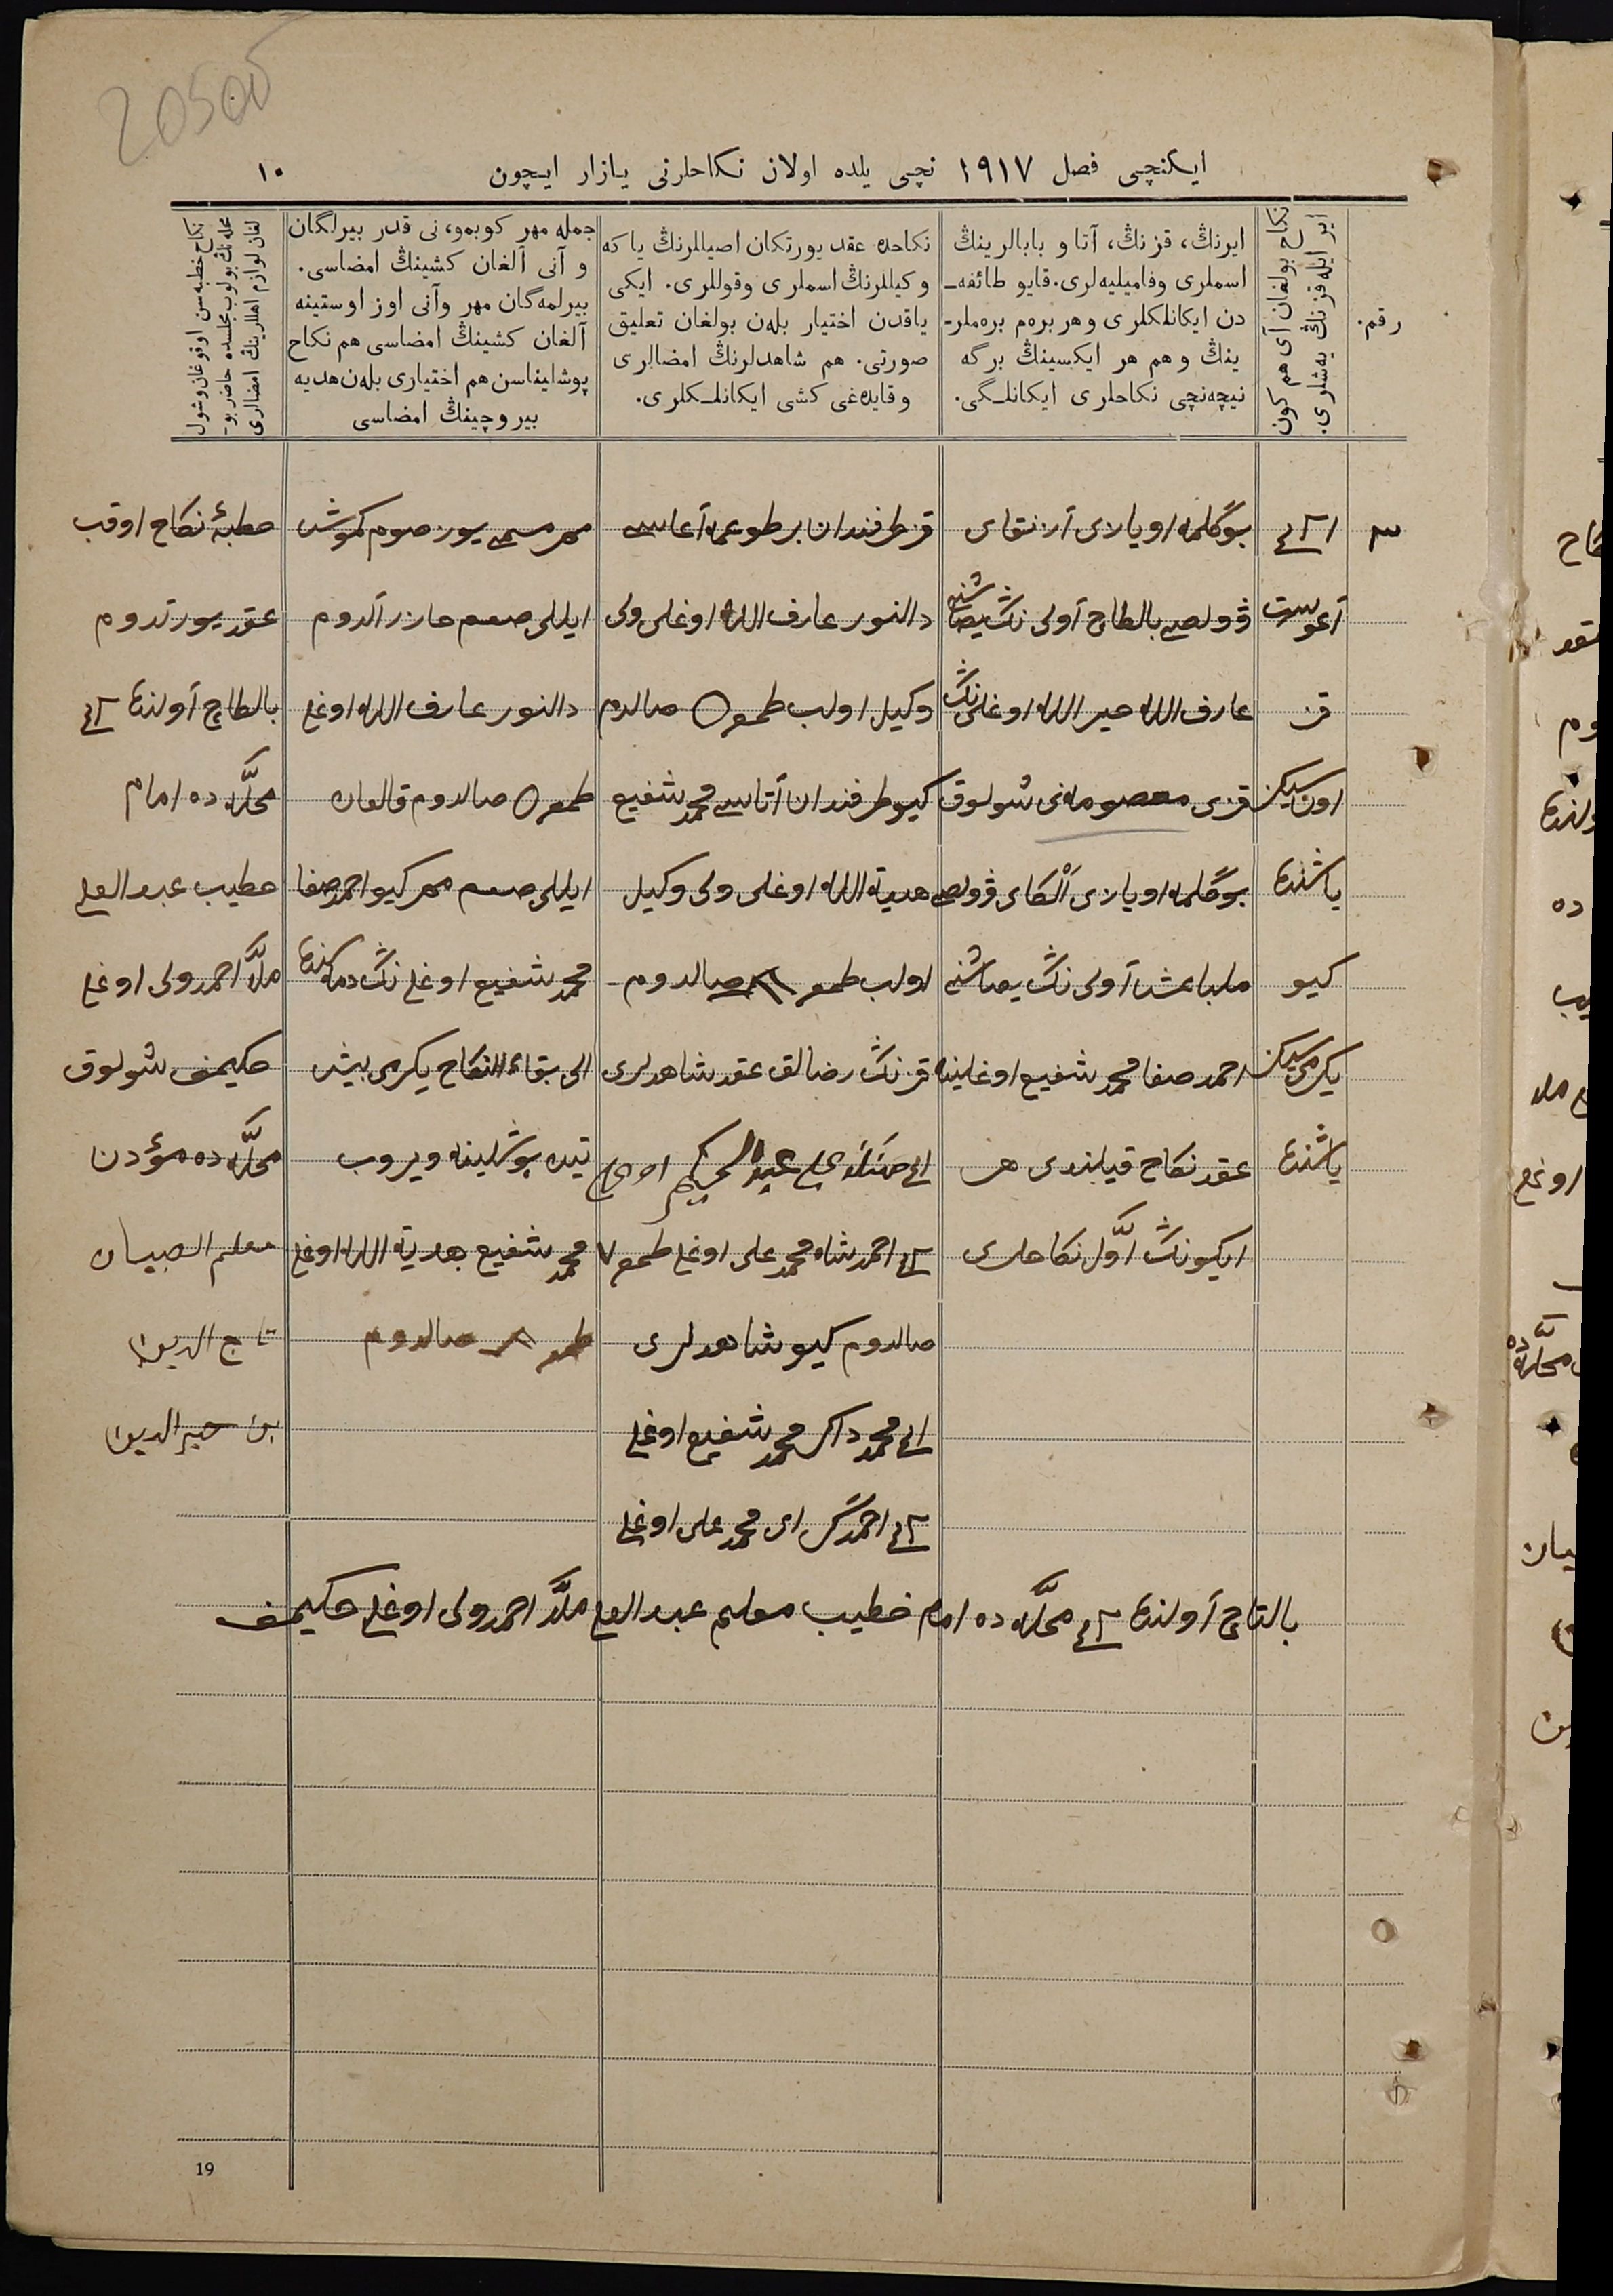 20500
ایکنچی فصل ۱۹۱۷ نچی یلده اولان نکاحلرنی یازار ایچون
۱۰
رقم.
نکاح بولغان آی هم کون
ایر ایله قز نڭ یه‌شلری.
ایرنڭ، قز نڭ، آتا و بابالرینڭ
اسملری وفامیلیه‌لری. قایو طائفه‌ـ
دن ایکانلکلری و هر برەم برەملر-
ینڭ و هم هر ایکسینڭ برگه
نیچه‌نچی نکاحلری ایکانلـگی.
نکاحده عقد یورتکان اصیاللرنڭ یا که
وکیللرنڭ اسملری وقوللری. ایکی
یاقدن اختیار بله‌ن بولغان تعلیق
صورتی. هم شاهدلرنڭ امضالری
وقایده‌غی کشی ایکانلـکلری.
جمله مهر کوبمو، نی قدر بیرلگان
و آنی آلغان کشینڭ امضاسی.
بیرلمه‌گان مهر وآنی اوز اوستینه
آلغان کشینڭ امضاسی هم نکاح
پوشلیناسن هم اختیاری بله‌ن هدیه
بیر وچینڭ امضاسی
نکاح خطبه‌سن اوقوغان وشول
محله‌نڭ بولوب مجلسده حاضر بو-
لغان لوازم اهللارینڭ امضالری
۳
۲۱ نچی
آغوست
قز
اون سیکز
یاشنده
کیو
یکرمی سیکز
یاشنده
بوگلمه اویازی
ڤولصی بالطاچ آولی نڭ
عارف الله خیر الله اوغلی نڭ
قزی معصومه‌نی شولوق
بوگلمه اویازی آلکای ڤولصی
آولی نڭ
احمد صفا محمد شفیع اوغلینه
عقد نکاح قیلندی هر
ایکیونڭ اوّل نکاحلری
قز طرفندان بر طوغمه آغاسی
دالنور عارف الله اوغلی ولی
وکیل اولب طمغم O صالدم
کیو طرفندان آتاسی محمد شفیع
هدیة الله اوغلی ولی وکیل
اولب طمغم صالدوم
قز نڭ رضالق عقد شاهدلری
۲ نچی احمد شاه محمد علی اوغلی طمغم ۷
صالدوم کیو شاهدلری
۱ نچی محمد ذاکر محمد شفیع اوغلی
۲ نچی احمد گرای محمد علی اوغلی
مهر مسمی یوز صوم کموش
ایللی صوم حاضر آلدوم
دالنور عارف الله اوغلی
طمغم O صالدوم قالغان
ایللی صوم مهر کیو احمد صفا
محمد شفیع اوغلی نڭ ذمه‌سنده
الی بقاء النکاح یکرمی بیش
تین پوشلینه ویروب
محمد شفیع هدیة الله اوغلی
طمغم صالدوم
خطبهٔ نکاح اوقب
عقد یورتدوم
بالطاچ آولنده ۲ نچی
محلّه ده امام
خطیب عبد العلی
ملّا احمد ولی اوغلی
حکیمف شولوق
محلّه ده مؤذن
معلم الصبیان
تاج الدین
بن خیر الدین
بالتاچ آولنده ۲ نچی محلّه ده امام خطیب معلم عبد العلی ملّا احمد ولی اوغلی حکیمف
19